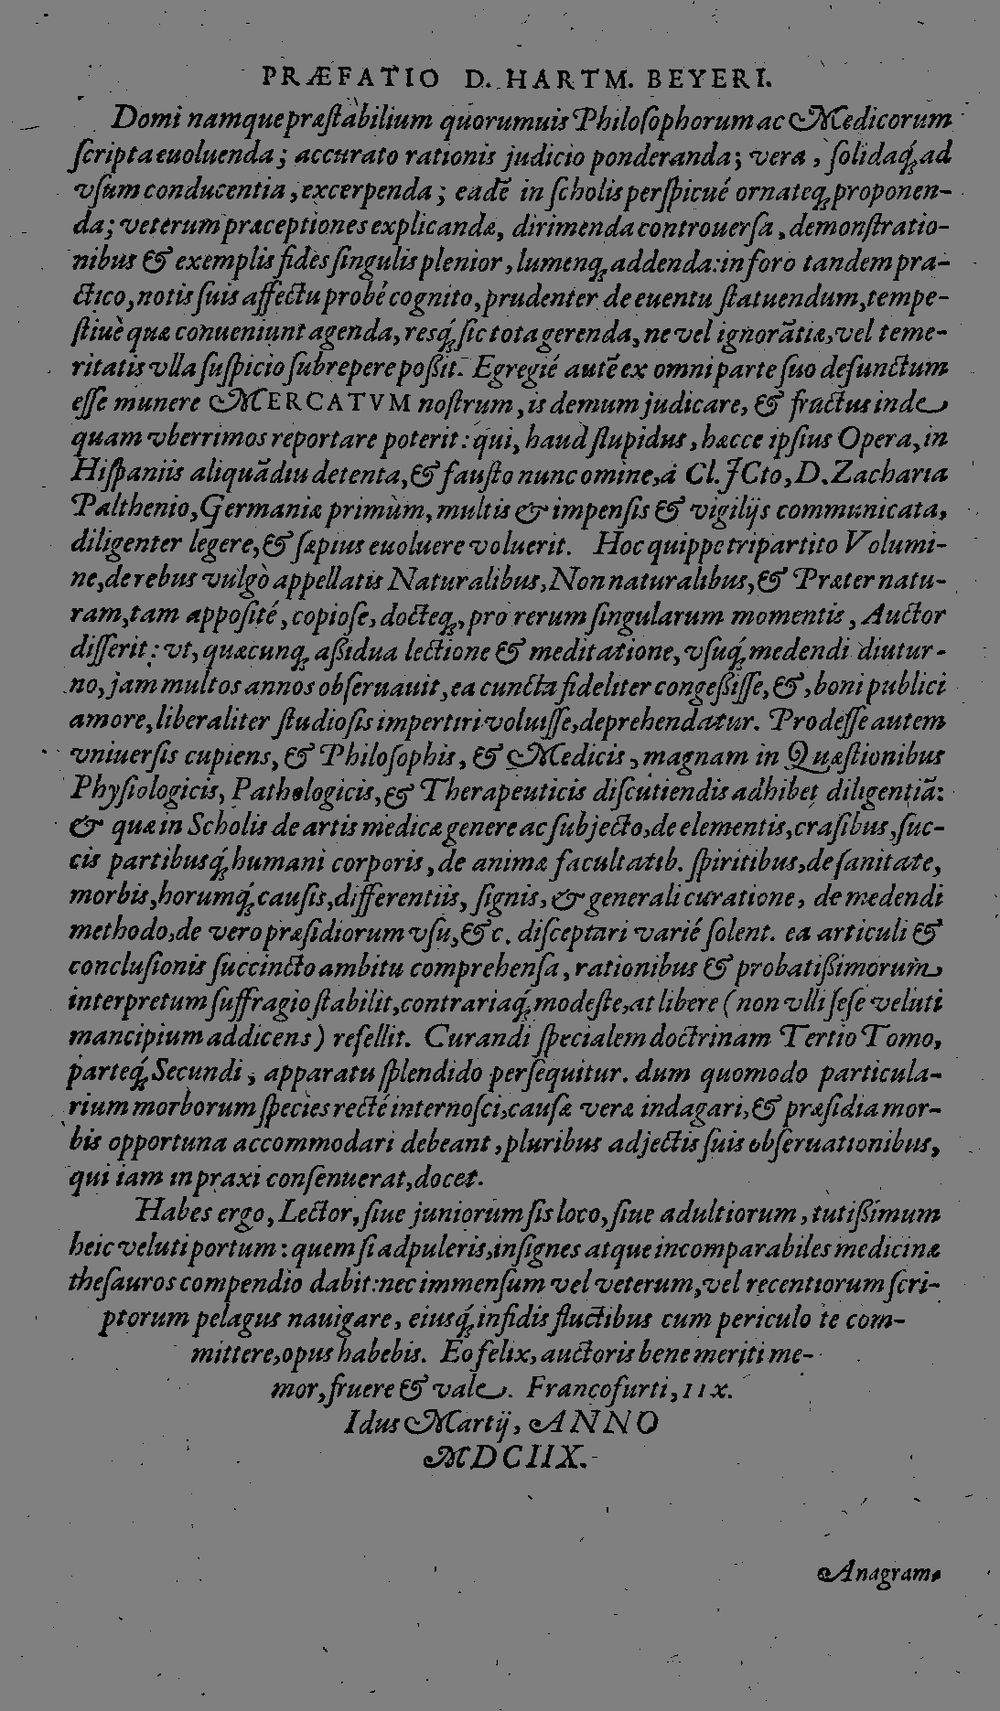 PRÆFATIO D. HARTM. BEYERI.
Domi namque præstabilium quorumuis Philosophorum ac Medicorum
scripta euoluenda; accurato rationis judicio ponderanda; vera, solidaq́; ad
vsum conducentia, excerpenda; eadē in scholis perspicué ornateq; proponen-
da; veterum præceptiones explicandæ, dirimenda controuersa, demonstratio-
nibus & exemplis fides singulis plenior, lumenq; addenda: in foro tandem pra-
ctico, notis suis affectu probé cognito, prudenter de euentu statuendum, tempe-
stiuè quæ conueniunt agenda, resq́; sic tota gerenda, ne vel ignorātiæ, vel teme-
ritatis vlla suspicio subrepere poßit. Egregié autē ex omni parte suo defunctum
esse munere MERCATVM nostrum, is demum judicare, & fructus inde
quam vberrimos reportare poterit: qui, haud stupidus, hæcce ipsius Opera, in
Hispaniis aliquādiu detenta, & fausto nunc omine, á Cl. JCto, D. Zacharia
Palthenio, Germaniæ primùm, multis & impensis & vigilijs communicata,
diligenter legere, & sæpius euoluere voluerit. Hoc quippe tripartito Volumi-
ne, de rebus vulgò appellatis Naturalibus, Nonnaturalibus, & Præter natu-
ram, tam apposité, copiose, docteq;, pro rerum singularum momentis, Auctor
disserit: vt, quæcunq; aßidua lectione & meditatione, vsuq́; medendi diutur-
no, jam multos annos obseruauit, ea cuncta fideliter congeßisse, &, boni publici
amore, liberaliter studiosis impertiri voluisse, deprehendatur. Prodesse autem
vniuersis cupiens, & Philosophis, & Medicis, magnam in Quæstionibus
Physiologicis, Pathologicis, & Therapeuticis discutiendis adhibet diligentiā:
& quæ in Scholis de artis medicæ genere ac subjecto, de elementis, crasibus, suc-
cis partibusq́; humani corporis, de animæ facultatib. spiritibus, de sanitate,
morbis, horumq́; causis, differentiis, signis, & generali curatione, de medendi
methodo, de vero præsidiorum vsu, &c. disceptari varié solent. ea articuli &
conclusionis succincto ambitu comprehensa, rationibus & probatißimorum
interpretum suffragio stabilit, contrariaq́; modeste, at libere (non vlli sese veluti
mancipium addicens) refellit. Curandi specialem doctrinam Tertio Tomo,
parteq́; Secundi, apparatu splendido persequitur. dum quomodo particula-
rium morborum species recté internosci, causæ veræ indagari, & præsidia mor-
bis opportuna accommodari debeant, pluribus adjectis suis obseruationibus,
qui iam in praxi consenuerat, docet.
Habes ergo, Lector, siue juniorum sis loco, siue adultiorum, tutißimum
heic veluti portum: quem si adpuleris, insignes atque incomparabiles medicinæ
thesauros compendio dabit: nec immensum vel veterum, vel recentiorum scri-
ptorum pelagus nauigare, eiusq́; infidis fluctibus cum periculo te com-
mittere, opus habebis. Eo felix, auctoris bene meriti me-
mor, fruere & vale. Francofurti, IIX.
Idus Martij, ANNO
MDCIIX.
Anagram-